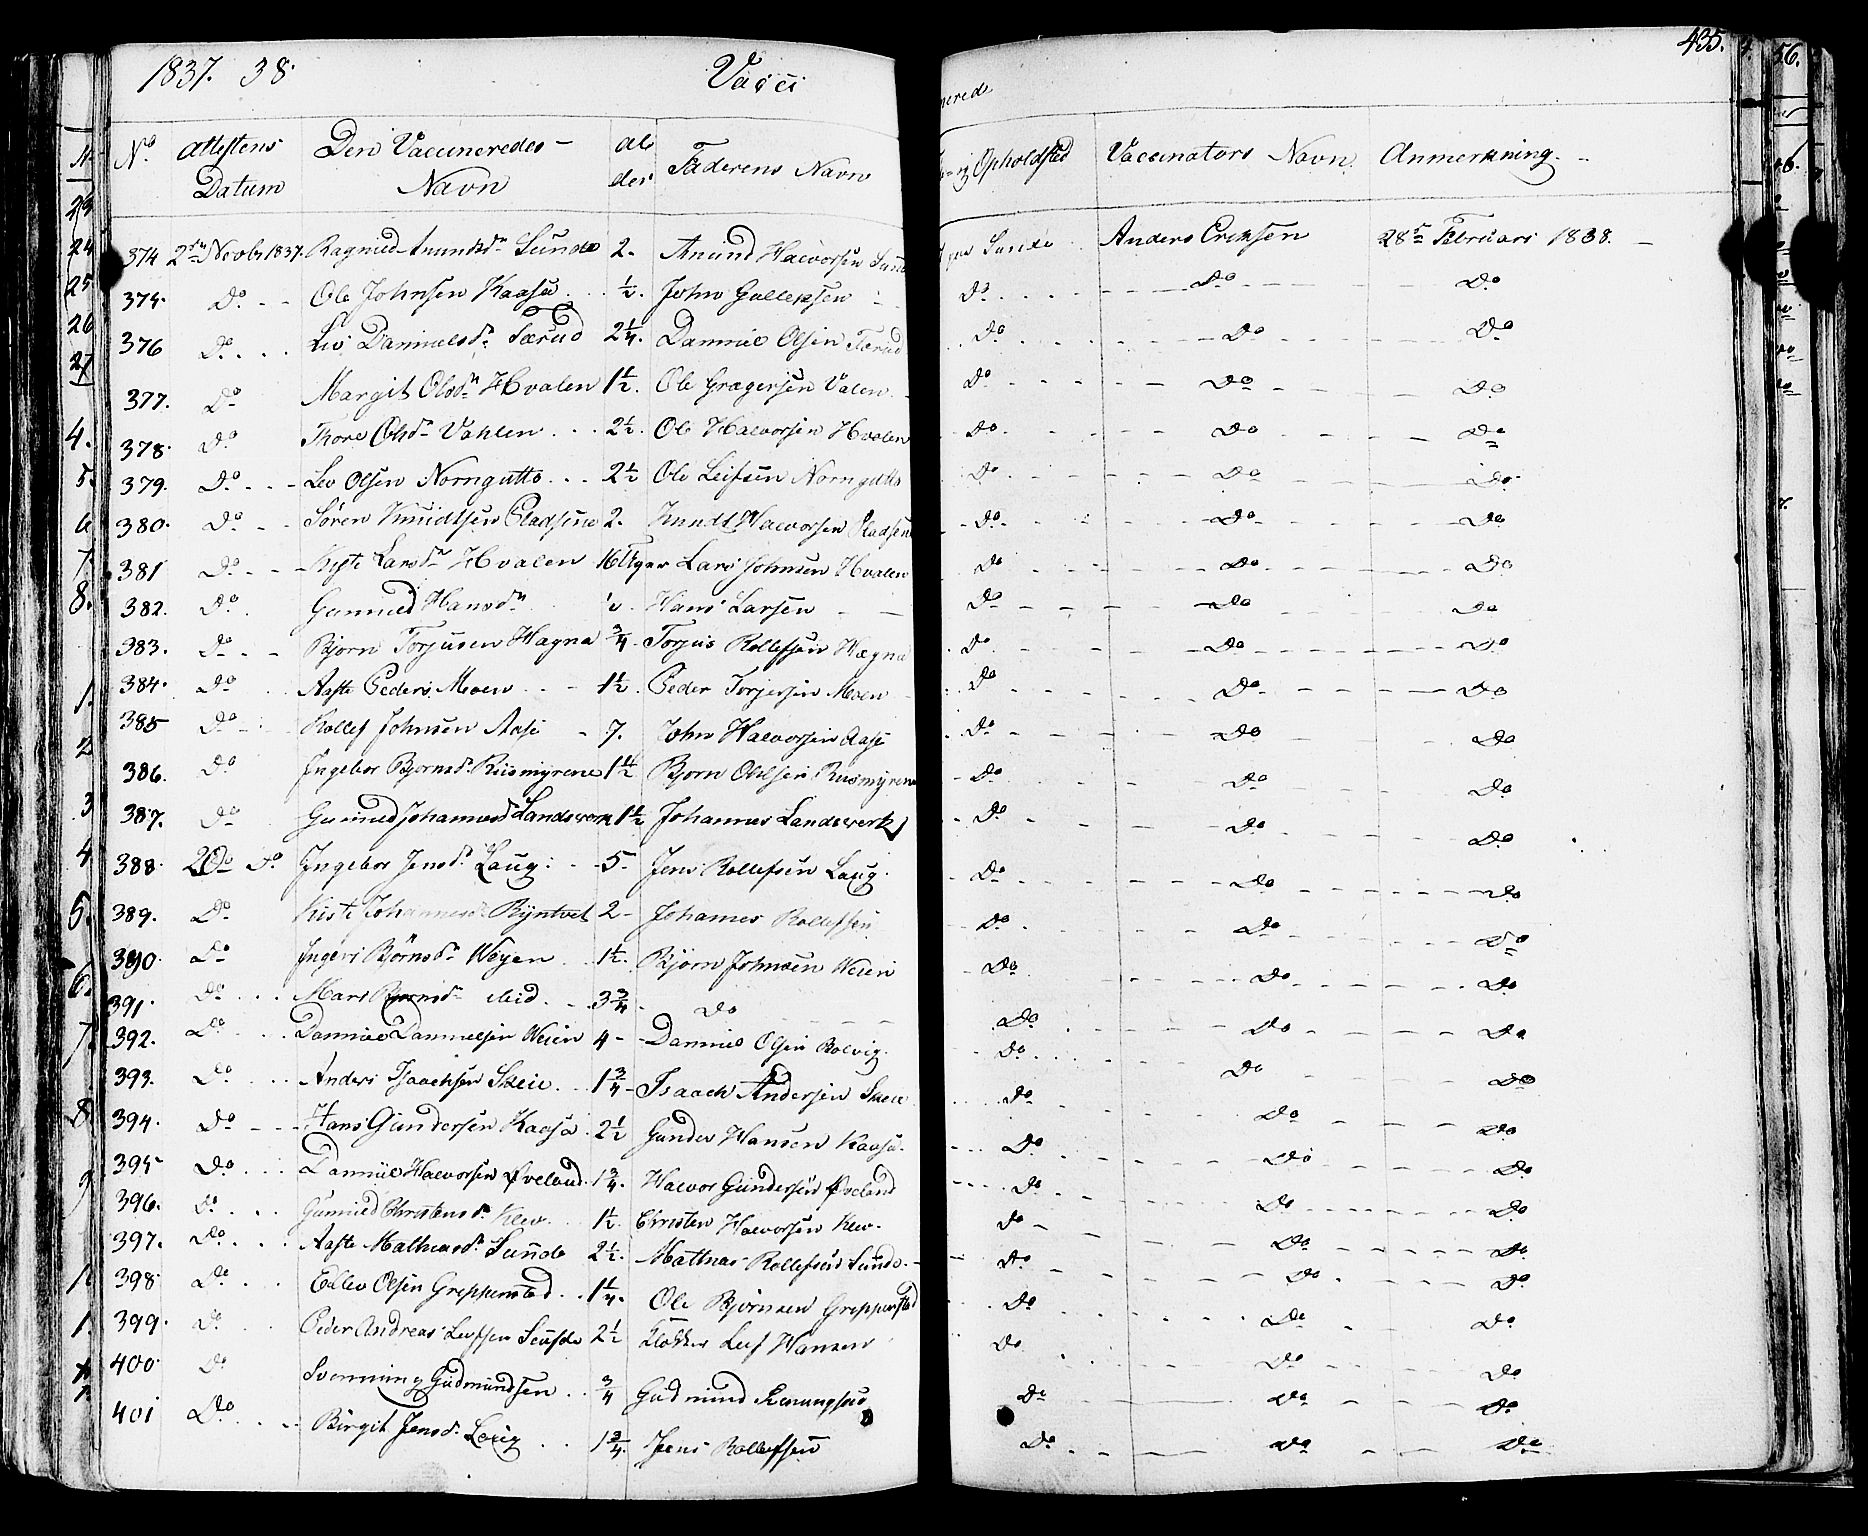 1837. 38. Vacci nerede 435.
No. Attestens Datum Den Vaccineredes Navn al der Faderens Navn Opholdsted Vaccinators Navn Anmerkning.
374 2den Novbr 1837. Ragnild Anundsdr Sunde 2. Anund Halvorsen Sunde Sunde Anders Eriksen 28de Februari 1838.
375. Do Ole Johnsen Kaasa 1/2. John Gulleksen Do Do Do
376 Do Liv Dannielsdr Særud 2 1/4. Danniel Olsen Do Do Do
377. Do Margit Olsdr Hvalen 1 1/2. Ole Grægersen Valen Do Do Do
378. Do Thore Olsdr Vahlen 2 1/2. Ole Halvorsen Hvalen Do Do Do
379. Do Lev Olsen Norngutto 2 1/2 Ole Leifsen Norngutto Do Do Do
380. Do Søren Knudtsen Pladsene 2. Knudt Halvorsen Pladsene Do Do Do
381 Do Larsdr Hvalen 16 Uger Lars Johnsen Hvalen Do Do Do
382. Do Gunnild Hansdr 1/2. Hans Larsen Do Do Do
383. Do Bjørn Torjusen Hagna 3/4. Torjus Rollefsen Hægna Do Do Do
384. Do Aaste Peders. Moen 1 1/2. Peder Torjersen Moen Do Do Do
385 Do Rollef Johnsen Aase 7. John Halvorsen Aase Do Do Do
386. Do Ingebor Bjornsdr Riismyrene 1 1/2 Bjorn Olsen Riismyrene Do Do Do
387. Do Gunnild Johannesdr Landsverk 1 1/2 Johannes Landsverk Do Do Do
388. 20de Do Ingebor Jensdr Laug. 5 Jens Rollefsen Laug. Do Do Do
389. Do Johannesdr 2 Johannes Rollefsen Do Do Do
390. Do Ingeri Bjørnsdr Weyen 1 1/2. Bjørn Johnsen Weien Do Do Do
391. Do Mari Bjørnsdr ibid. 3 3/4 Do Do Do Do
392. Do Danniel Dannielsen Weien 4 Danniel Olsen Bolvig. Do Do Do
393. Do Anders Isaachsen Skeie 1 3/4 Isaach Andersen Skeie Do Do Do
394. Do Hans Gundersen Kaasa 2 1/2 Gunder Hansen Kaasa. Do Do Do
395 Do Danniel Halvorsen Øveland 1 3/4. Halvor Gundersen Øveland Do Do Do
396. Do Gunnild Christensdr Klev 1 1/2. Christen Halvorsen Klev. Do Do Do
397. Do Aaste Mathiasdr Sunde 2 1/2. Matthias Rollefsen Sunde. Do Do Do
398 Do Edlev Olsen Greppenstad 1 1/4. Ole Bjørnsen Greppenstad Do Do Do
399. Do Peder Andreas Leifsen 2 1/2 Klokker Leif Hansen Do Do Do
400. Do Svenning Gudmundsen 3/4 Gudmund Do Do Do
401 Do Birgit Jensdr Laug 1 3/4. Jens Rollefsen Do Do Do